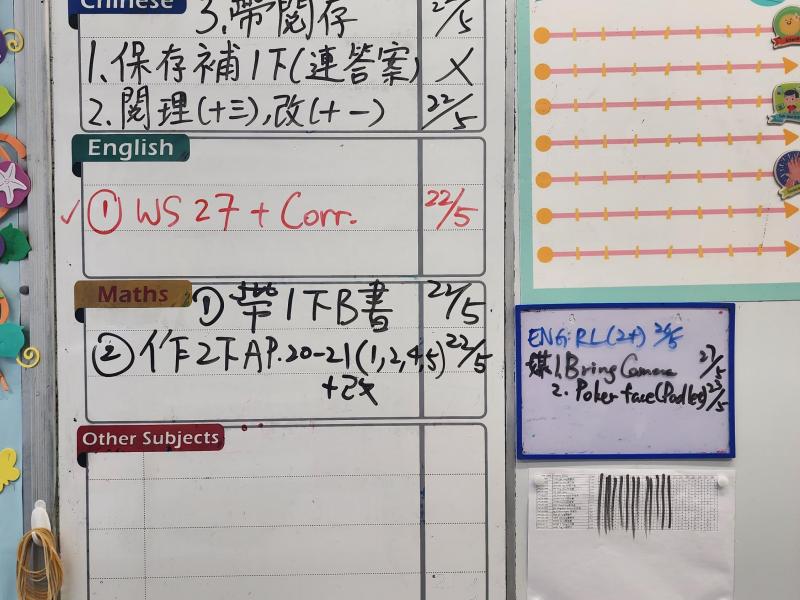 Chinese
3.帶閱存 22/5
1.保存補1下(連答案) X
2.閱理(十三),改(十一) 22/5
English
✓ ① WS 27 + Corr. 22/5
Maths
① 帶1下B書 22/5
② 作2下A P.20-21(1,2,4,5) 22/5
+改
Other Subjects
ENG: RL(24) 24/5
媒1.Bring Camera 27/5
2. Poker face(Padlet) 23/5